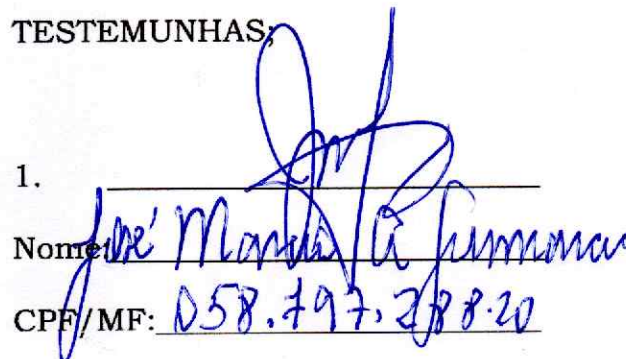 TESTEMUNHAS;
1.
Nome: José
CPF/MF: 058.797.288.20